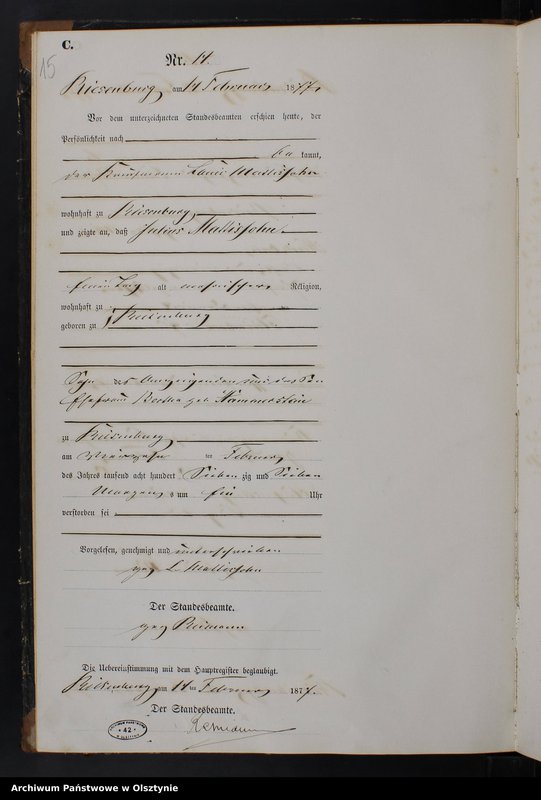 C.
15
Nr. 14.
Riesenburg am 14 Februar 1877.
Vor dem unterzeichneten Standesbeamten erschien heute, der
Persönlichkeit nach
be kannt,
der Kaufmann Louis Mattissohn
wohnhaft zu Riesenburg
und zeigte an, daß Julius Mattissohn
einen Tag alt mosaischer Religion,
wohnhaft zu
Riesenburg
geboren zu
Sohn des Anzeigenden und dessen
Ehefrau Bertha geb Hammerstein
zu Riesenburg
am vierzehn ten Februar
des Jahres tausend acht hundert Sieben zig und Sieben
Morgens um Uhr
verstorben sei
Vorgelesen, genehmigt und unterschrieben
gez L. Mattissohn
Der Standesbeamte.
gez Reimann
Die Uebereinstimmung mit dem Hauptregister beglaubigt.
Riesenburg am 14 ten Februar 1877.
Der Standesbeamte.
Reimann
42
Archiwum Państwowe w Olsztynie